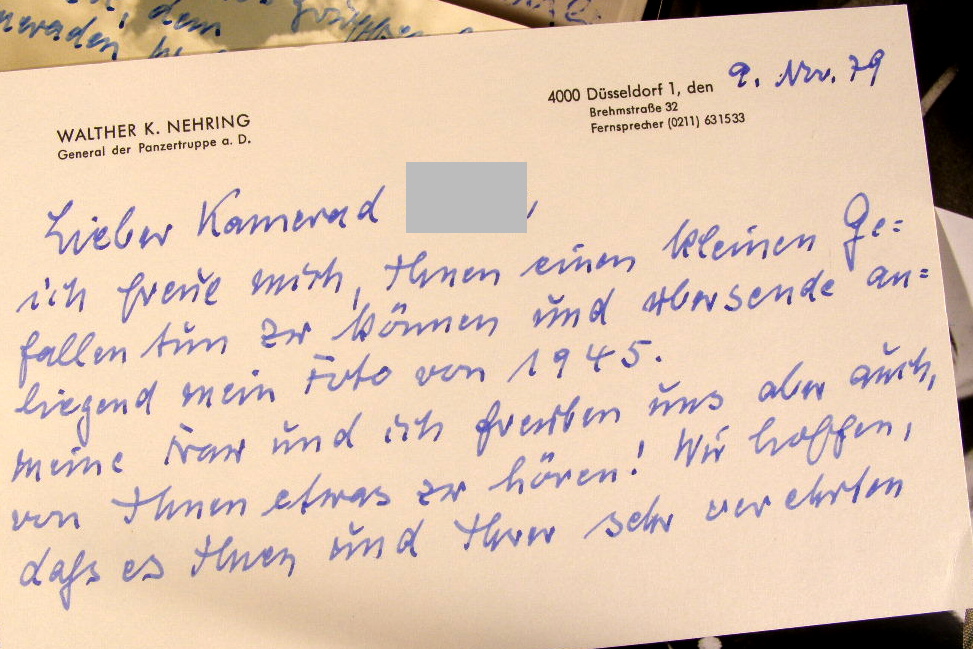 dem
WALTHER K. NEHRING
General der Panzertruppe a. D.
4000 Düsseldorf 1, den 9. Nov. 79
Brehmstraße 32
Fernsprecher (0211) 631533
Lieber Kamerad ,
ich freue mich, Ihnen einen kleinen Ge=
fallen tun zu können und übersende an=
liegend mein Foto von 1945.
Meine Frau und ich freuen uns aber auch,
von Ihnen etwas zu hören! Wir hoffen,
daß es Ihnen und Ihrer sehr verehrten